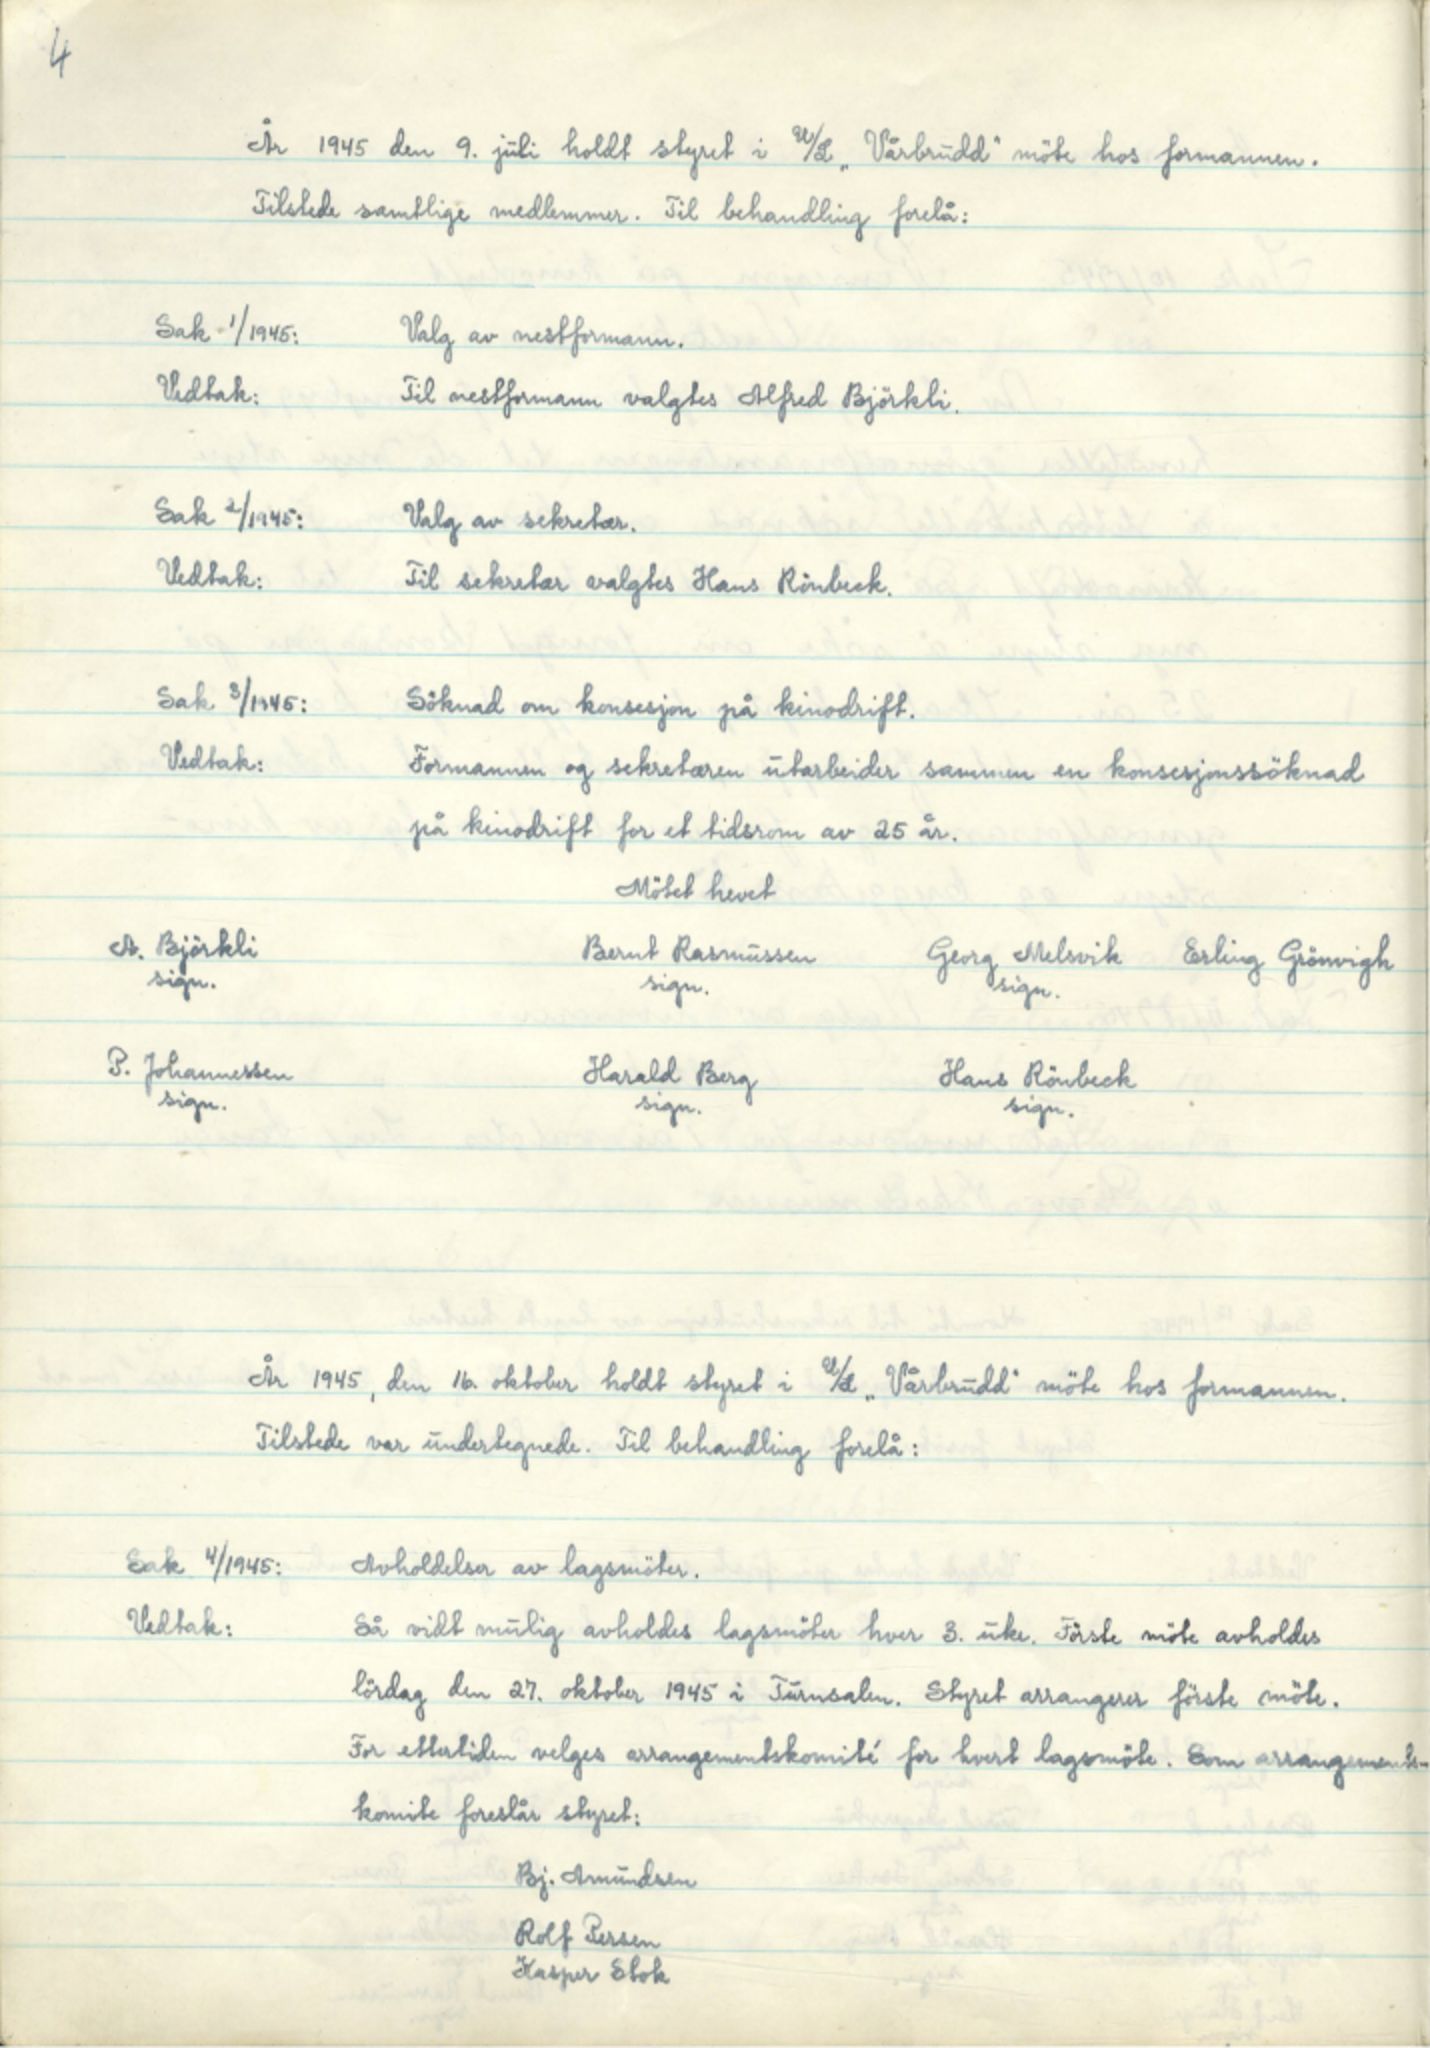 4
År 1945 den 9. juli holdt styret i U/L „Vårbrudd“ möte hos formannen.
Tilstede samtlige medlemmer. Til behandling forelå:
Sak 1/1945: Valg av nestformann.
Vedtak: Til nestformann valgtes Alfred Björkli.
Sak 2/1945: Valg av sekretær.
Vedtak: Til sekretær valgtes Hans Rönbeck.
Sak 3/1945: Söknad om konsesjon på kinodrift.
Vedtak: Formannen og sekretæren utarbeider sammen en konsesjonssöknad
på kinodrift for et tidsrom av 25 år.
Mötet hevet
A. Björkli Bernt Rasmussen Georg Melsvik Erling Grönvigh
sign. sign. sign.
P. Johannessen Harald Berg Hans Rönbeck
sign. sign. sign.
År 1945, den 16. oktober holdt styret i U/L „Vårbrudd“ möte hos formannen.
Tilstede var undertegnede. Til behandling forelå:
Sak 4/1945: Avholdelser av lagsmöter.
Vedtak: Så vidt mulig avholdes lagsmöter hver 3. uke. Förste möte avholdes
lördag den 27. oktober 1945 i Turnsalen. Styret arrangerer förste möte.
For ettertiden velges arrangementskomité for hvert lagsmöte. Som arrangements-
komite foreslår styret:
Bj. Amundsen
Rolf Persen
Kasper Stok